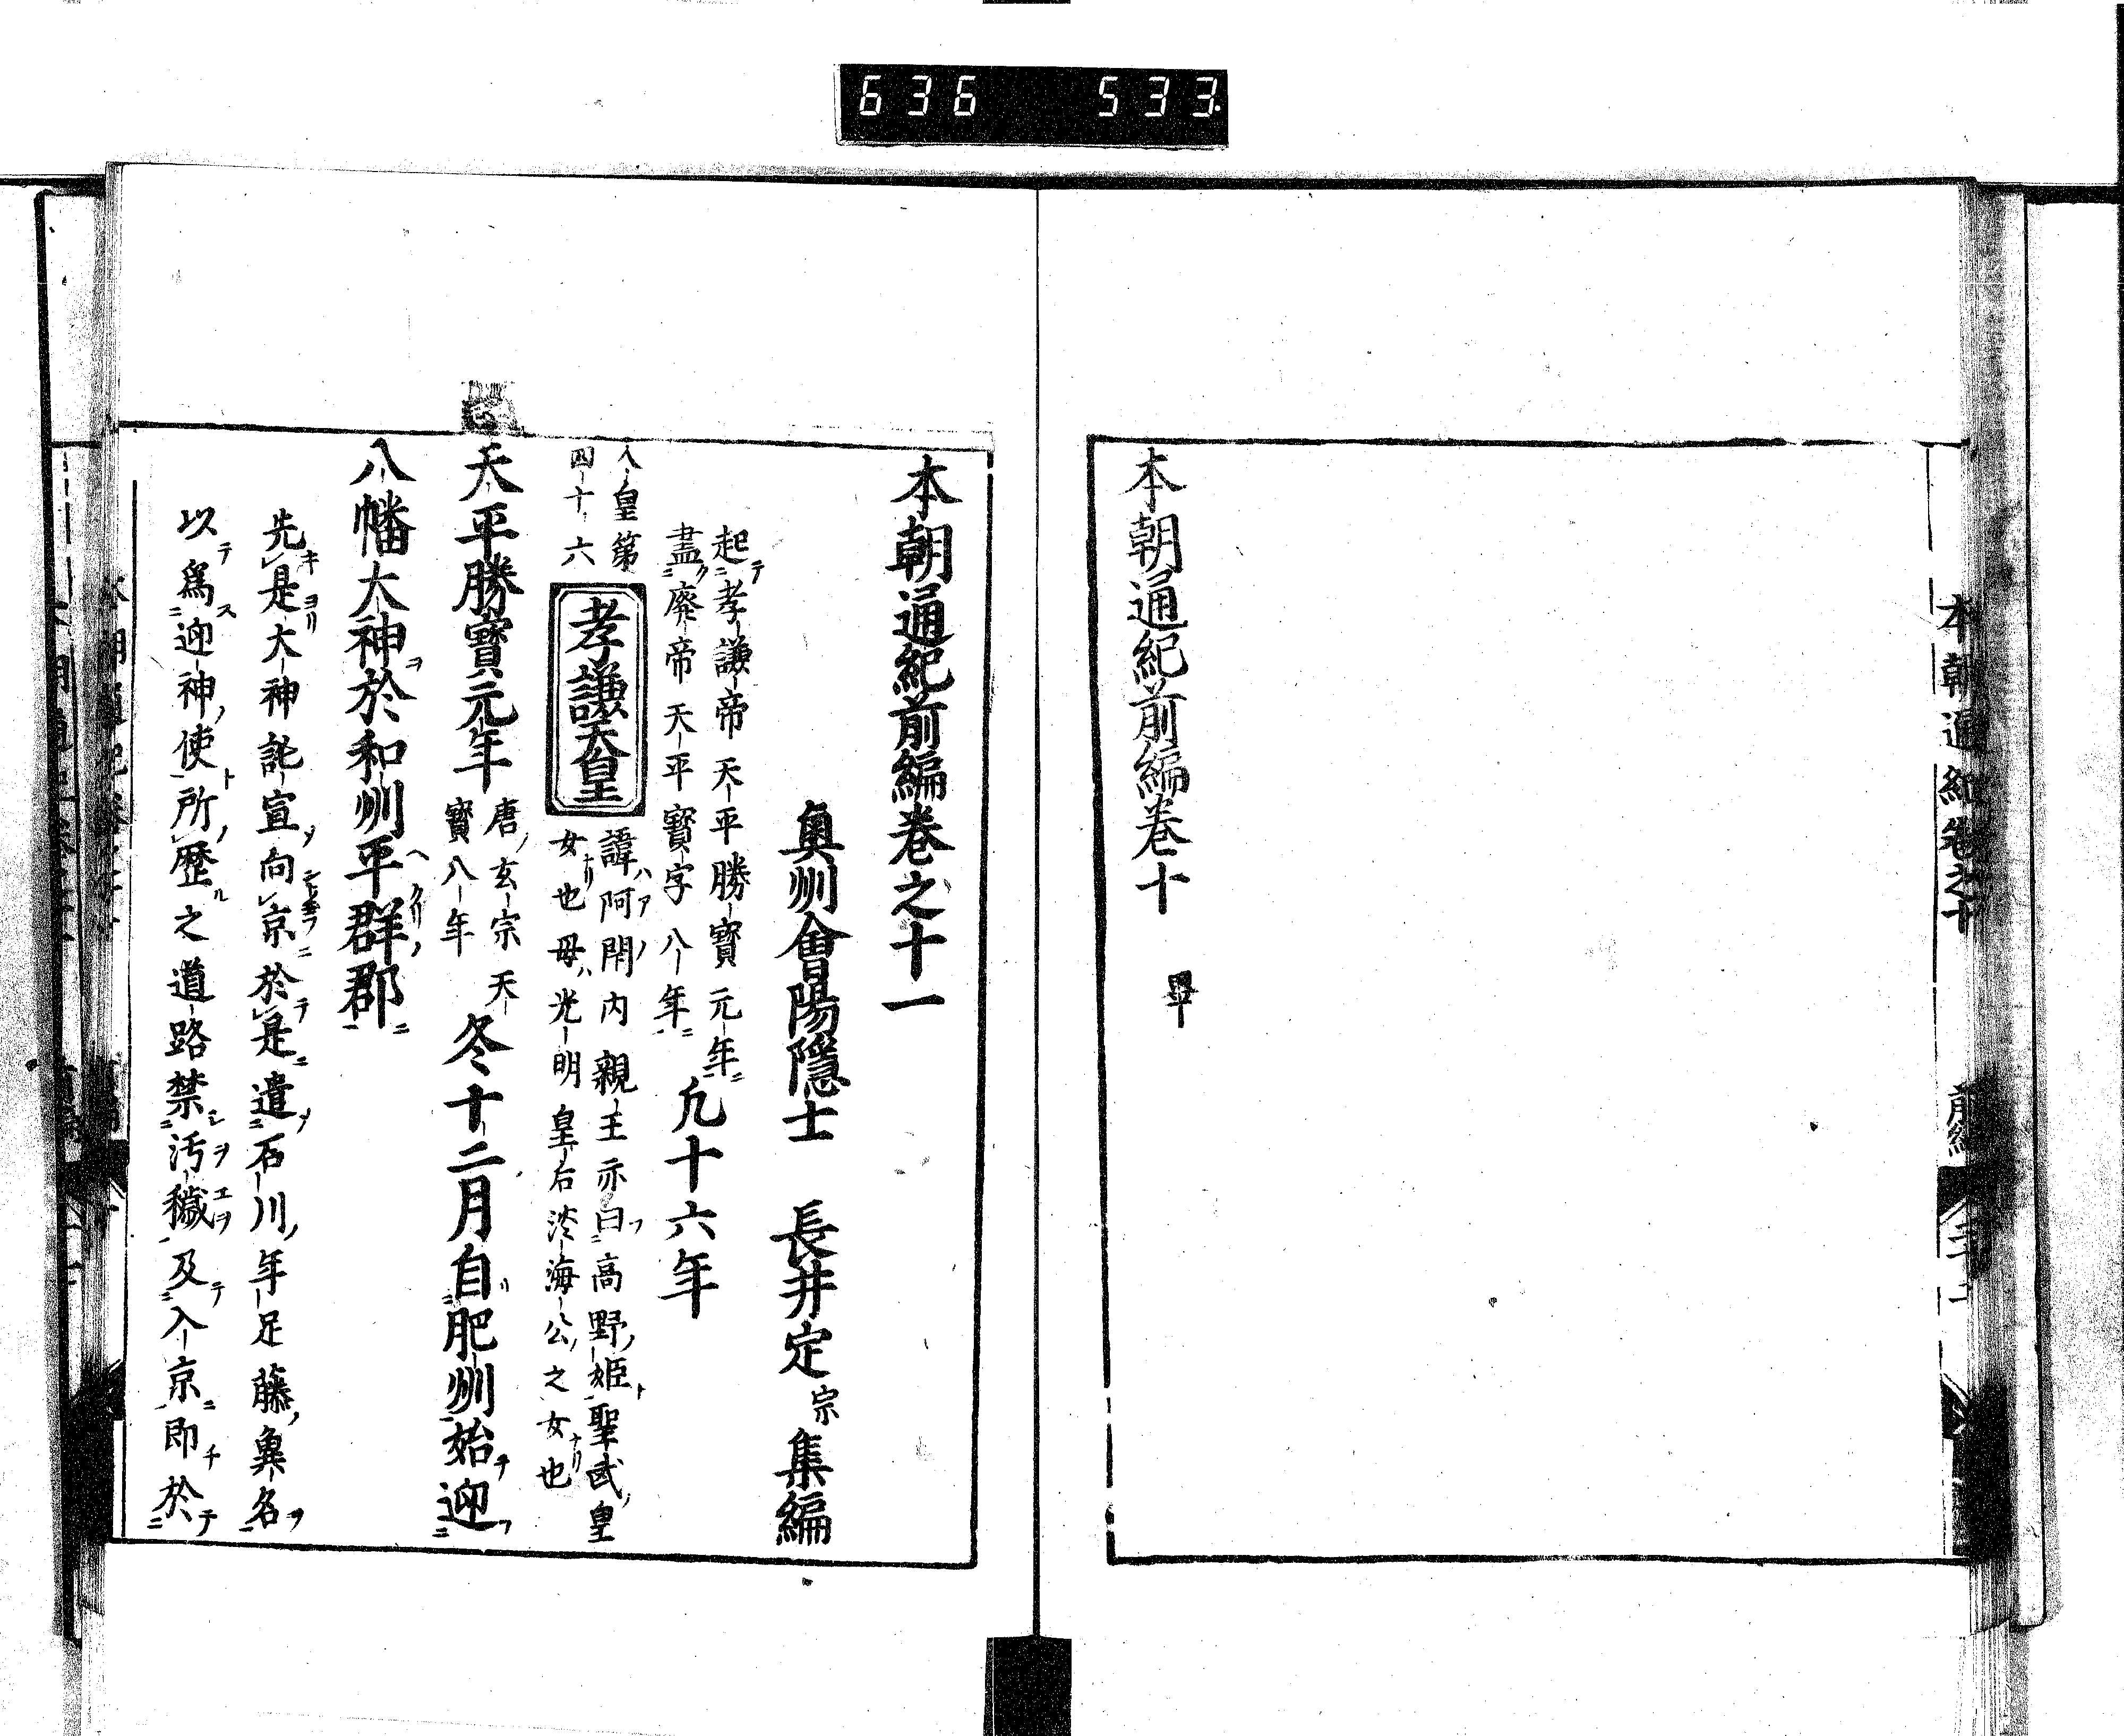 636 533
本朝通紀卷之十 前編
本朝通紀前編卷十 畢
本朝通紀前編卷之十一
奥州會陽隱士 長井定宗集編
起孝謙帝天平勝寶元年
盡廢帝天平寶字八年
凡十六年
人皇第
四十六
孝謙天皇
諱阿閇内親王亦曰高野姫聖武皇
女也母光明皇后淡海公之女也
天平勝寶元年
唐玄宗天
寶八年
冬十二月自肥州始迎
八幡大神於和州平群郡
先是大神託宣向京於是遣石川年足藤魚名
以爲迎神使所歷之道路禁汚穢及入京即於